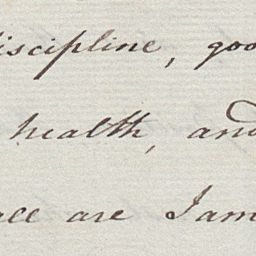 discipline, goo
health, and
all are Jam